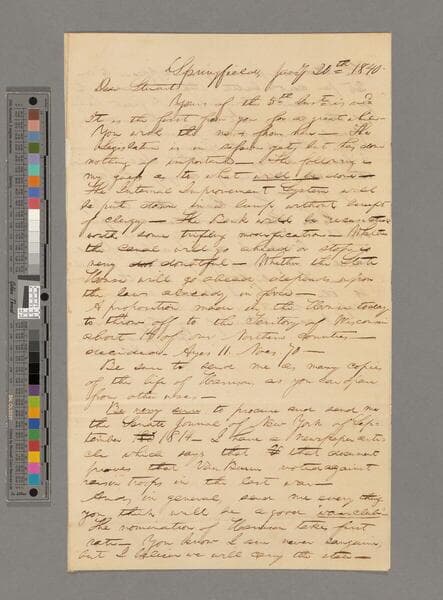 Springfield, Jany 20th 1840.
Dear Stuart:
Yours of the 5th Inst. is recd
It is the first from you for a great while.
You wish the news from here — The
Legislature is in session yet, but has done
nothing of importance — The following is
my guess as to what will be done —
The Internal Improvement System will
be put down in a lump, without benefit
of clergy — The Bank will be resuscitated
with some trifling modifications — Whether
the canal will go ahead or stop is
very doubtful — Whether the State
House will go ahead, depends upon
the laws already in force —
A proposition made in the House today
to throw off to the Territory of Wisconsin
about of our Northern counties —
decided, Ayes 11. Noes. 70 —
Be sure to send me as many copies
of the life of Harrison, as you can spare
from other uses —
Be very sure to procure and send me
the Senate Journal of New York of Sep-
tember 1814 — I have a newspaper article
which says that that document
proves that Van Buren voted against
raising troops in the last war —
And, in general, send me every thing
you think will be a good "war-club"
The nomination of Harrison takes first
rate — You know I am never sanguine,
but I believe we will carry the state —